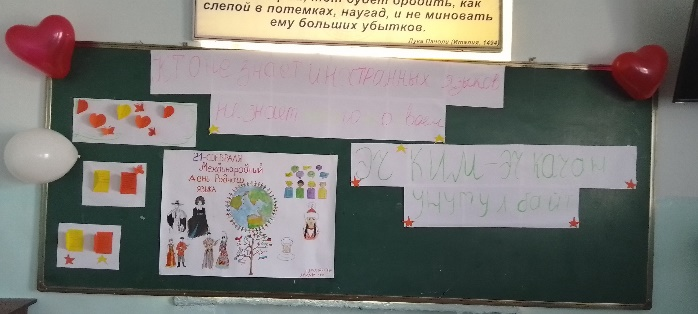 будет бродить, как
слепой в потемках, наугад, и не миновать
ему больших убытков.
Лука Пачоли (Италия, 1494)
КТО НЕ ЗНАЕТ ИНОСТРАННЫХ ЯЗЫКОВ
НЕ ЗНАЕТ
ЭЧ КИМ-ЭЧ КАЧОН
УНУТУЛБАЙТ
21-ФЕВРАЛЯ
Международный
ДЕНЬ РОДНОГО
ЯЗЫКА